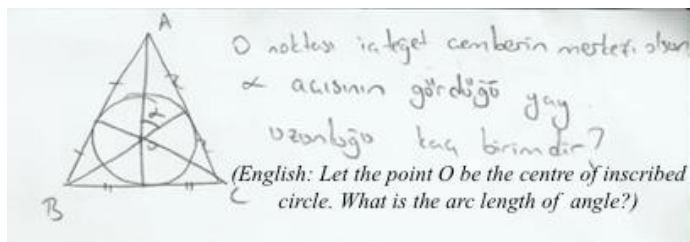 A
O noktası iç teğet çemberin merkezi olsun
α açısının gördüğü yay
uzunluğu kaç birimdir?
α
O
(English: Let the point O be the centre of inscribed
circle. What is the arc length of angle?)
B
C